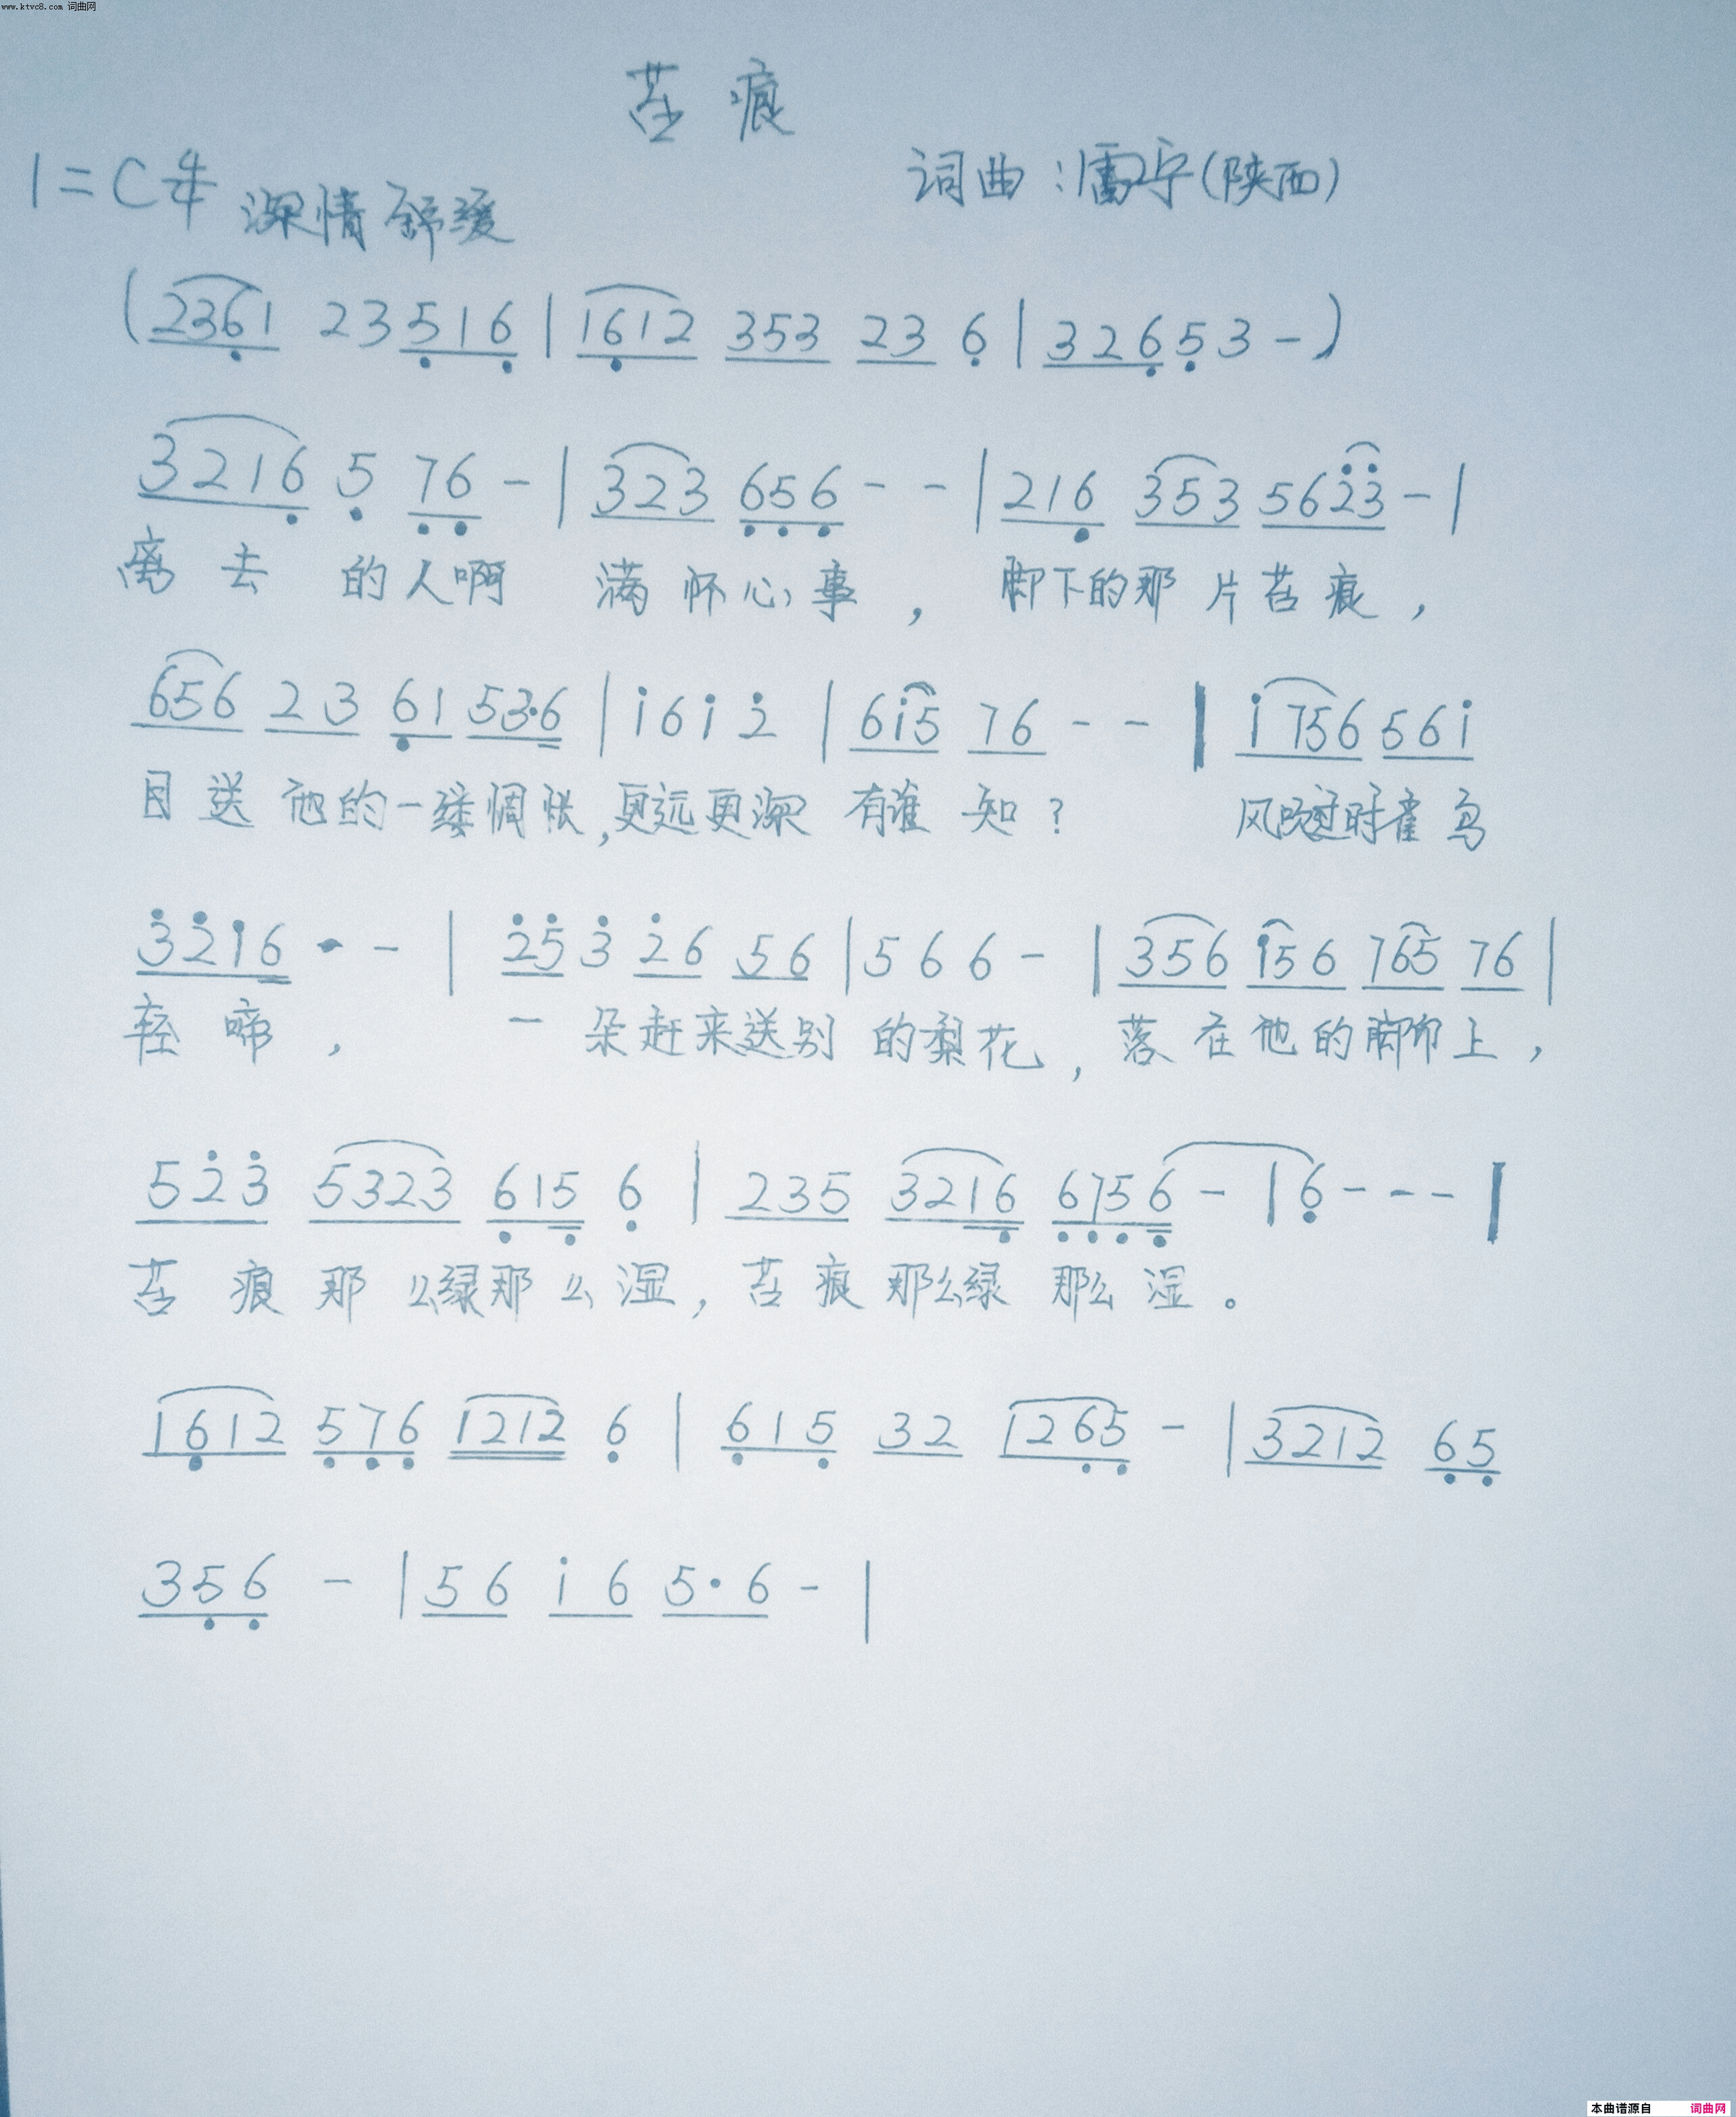 www.ktvc8.com 词曲网
苔痕
1=C 4/4 深情 舒缓 词曲:雷宁(陕西)
(2361 23516|1612 353 23 6|32653-)
3216 5 76-|323 656--|216 353 5623-|
离去的人啊 满怀心事, 脚下的那片苔痕,
656 23 61 53·6|i6i2|6i5 76--|i756 56i
目送他的一缕惆怅,更远更深 有谁知? 风吹过时雀鸟
3216·-|253 26 56|566-|356 i56 765 76|
轻啼, 一朵赶来送别的梨花,落在他的脚印上,
523 5323 615 6|235 3216 6756-|6---|
苔痕那么绿那么湿,苔痕那么绿那么湿。
1612 576 1212 6|615 32 1265-|3212 65
356 -|56 i6 5·6-|
本曲谱源自 词曲网